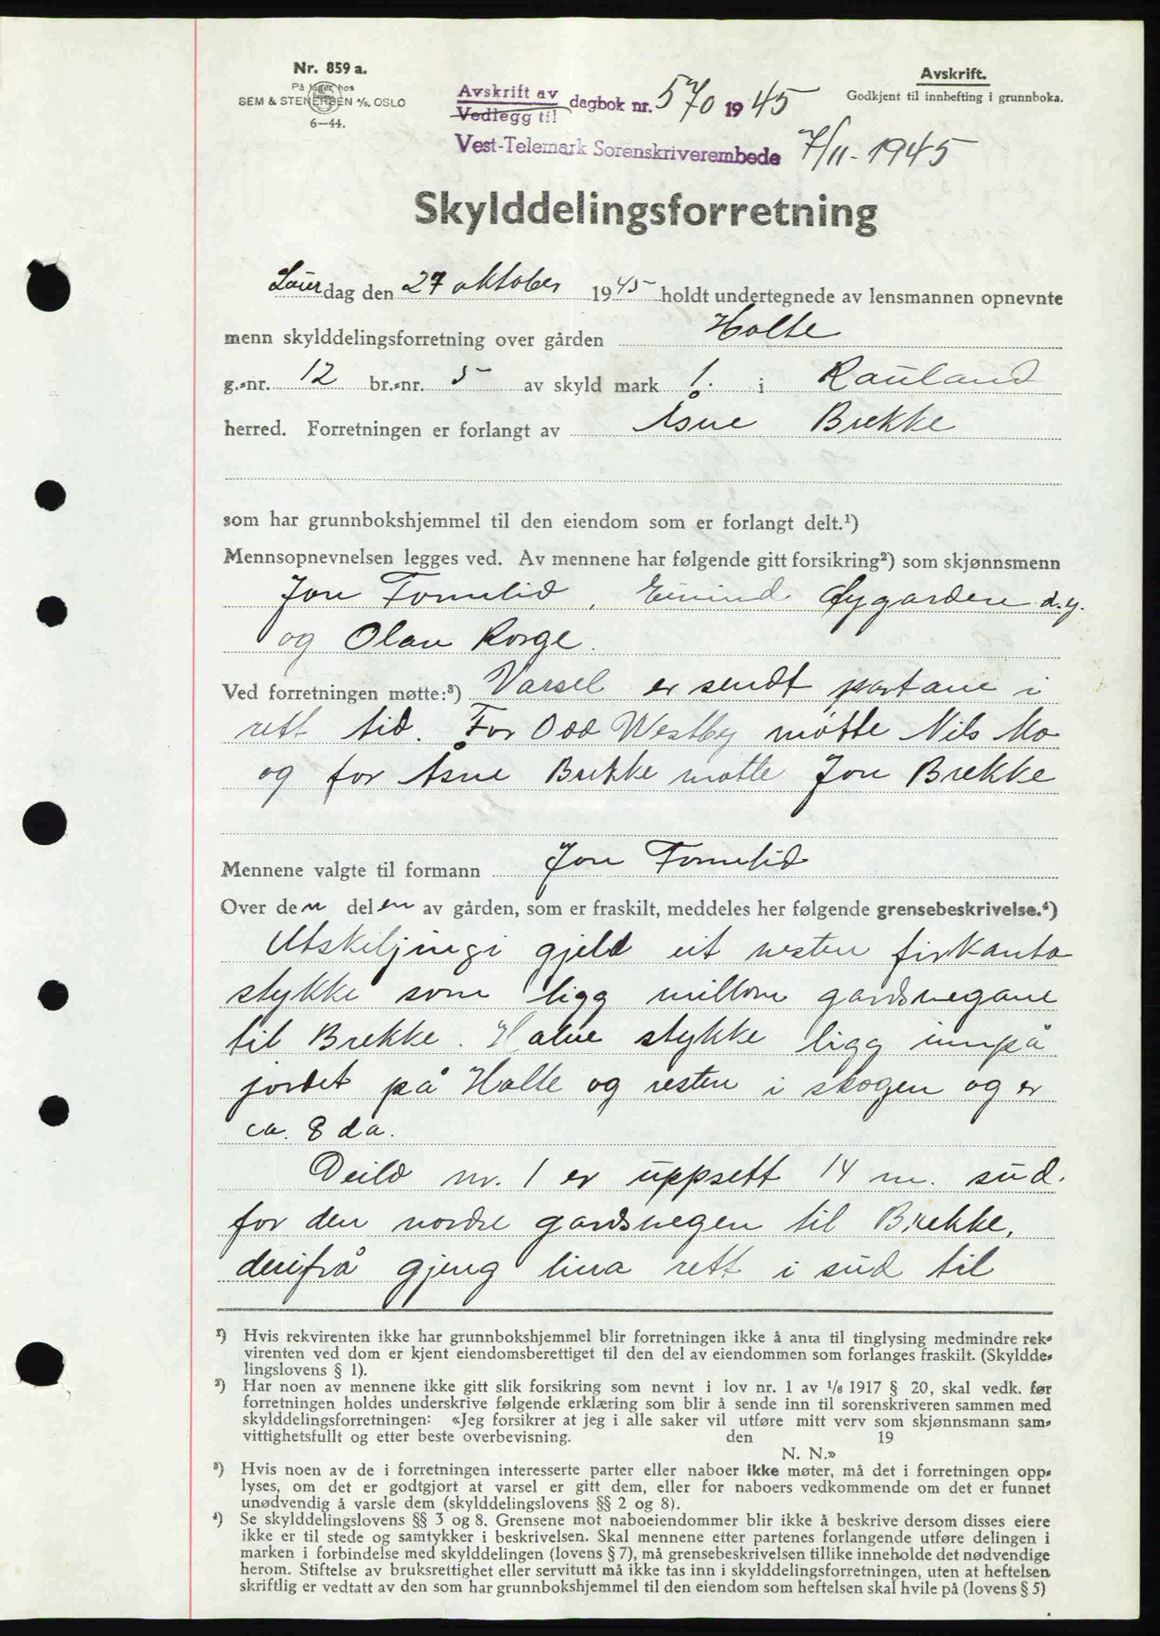 Nr. 859 a.
På lager hos
SEM & STENERSEN A/S, OSLO
6—44.
Avskrift av
Vedlegg til
dagbok nr. 570 1945
Vest-Telemark Sorenskriverembede 7/11-1945
Avskrift.
Godkjent til innhefting i grunnboka.
Skylddelingsforretning
Laurdag den 27 oktober 1945 holdt undertegnede av lensmannen opnevnte
menn skylddelingsforretning over gården Holte
g.-nr. 12 br.-nr. 5 av skyld mark 1. i Rauland
herred. Forretningen er forlangt av Åsne Brekke
som har grunnbokshjemmel til den eiendom som er forlangt delt.¹)
Mennsopnevnelsen legges ved. Av mennene har følgende gitt forsikring²) som skjønnsmenn
Jon Fomelid, Eivind Øygarden d.y.
og Olav Rorge.
Ved forretningen møtte:³) Varsel er sendt partane i
rett tid. For Odd Westby møtte Nils Mo
og for Åsne Brekke møtte Jon Brekke
Mennene valgte til formann Jon Fomelid
Over den delen av gården, som er fraskilt, meddeles her følgende grensebeskrivelse.⁴)
Utskiljingi gjeld eit nesten firkanta
stykke som ligg millom gardsvegane
til Brekke. Halve stykke ligg innpå
jordet på Holte og resten i skogen og er
ca. 8 da.
Deild nr. 1 er uppsett 14 m. sud.
for den nordre gardsvegen til Brekke,
derifrå gjeng lina rett i sud til
¹) Hvis rekvirenten ikke har grunnbokshjemmel blir forretningen ikke å anta til tinglysing medmindre rek-
virenten ved dom er kjent eiendomsberettiget til den del av eiendommen som forlanges fraskilt. (Skyldde-
lingslovens § 1).
²) Har noen av mennene ikke gitt slik forsikring som nevnt i lov nr. 1 av 1/6 1917 § 20, skal vedk. før
forretningen holdes underskrive følgende erklæring som blir å sende inn til sorenskriveren sammen med
skylddelingsforretningen: «Jeg forsikrer at jeg i alle saker vil utføre mitt verv som skjønnsmann sam-
vittighetsfullt og etter beste overbevisning. den 19
N. N.»
³) Hvis noen av de i forretningen interesserte parter eller naboer ikke møter, må det i forretningen opp-
lyses, om det er godtgjort at varsel er gitt dem, eller for naboers vedkommende om det er funnet
unødvendig å varsle dem (skylddelingslovens §§ 2 og 8).
⁴) Se skylddelingslovens §§ 3 og 8. Grensene mot naboeiendommer blir ikke å beskrive dersom disses eiere
ikke er til stede og samtykker i beskrivelsen. Skal mennene etter partenes forlangende utføre delingen i
marken i forbindelse med skylddelingen (lovens § 7), må grensebeskrivelsen tillike inneholde det nødvendige
herom. Stiftelse av bruksrettighet eller servitutt må ikke tas inn i skylddelingsforretningen, uten at heftelsen
skriftlig er vedtatt av den som har grunnbokshjemmel til den eiendom som heftelsen skal hvile på (lovens § 5)